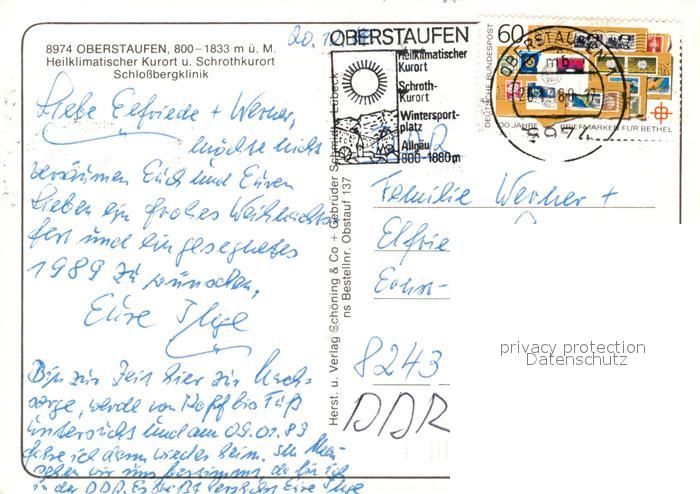 8974 OBERSTAUFEN, 800–1833 m ü. M.
Heilklimatischer Kurort u. Schrothkurort
Schloßbergklinik
Liebe Elfriede + Werner,
möchte nicht
versäumen Euch und Euren
Lieben ein frohes Weihnachts-
fest und ein gesegnetes
1989 zu wünschen,
Eure Ilse
Bin zur Zeit hier zur Nach-
sorge, werde von Kopf bis Fuß
untersucht und am 09.01.89
fahre ich dann wieder heim. Im
sehen wir uns bestimmt, da bin ich
in der DDR. Es grüßt herzlich Eure Ilse
Herst. u. Verlag Schöning & Co + Gebrüder Schmidt, Lübeck
ns Bestellnr. Obstauf 137
OBERSTAUFEN
Heilklimatischer
Kurort
Schroth-
Kurort
Wintersport-
platz
Allgäu
800-1880m
60
DEUTSCHE BUNDESPOST
100 JAHRE BRIEFMARKEN FÜR BETHEL
OBERSTAUFEN
mb
8974
Familie Werner +
Elfrie
8243
DDR
privacy protection
Datenschutz